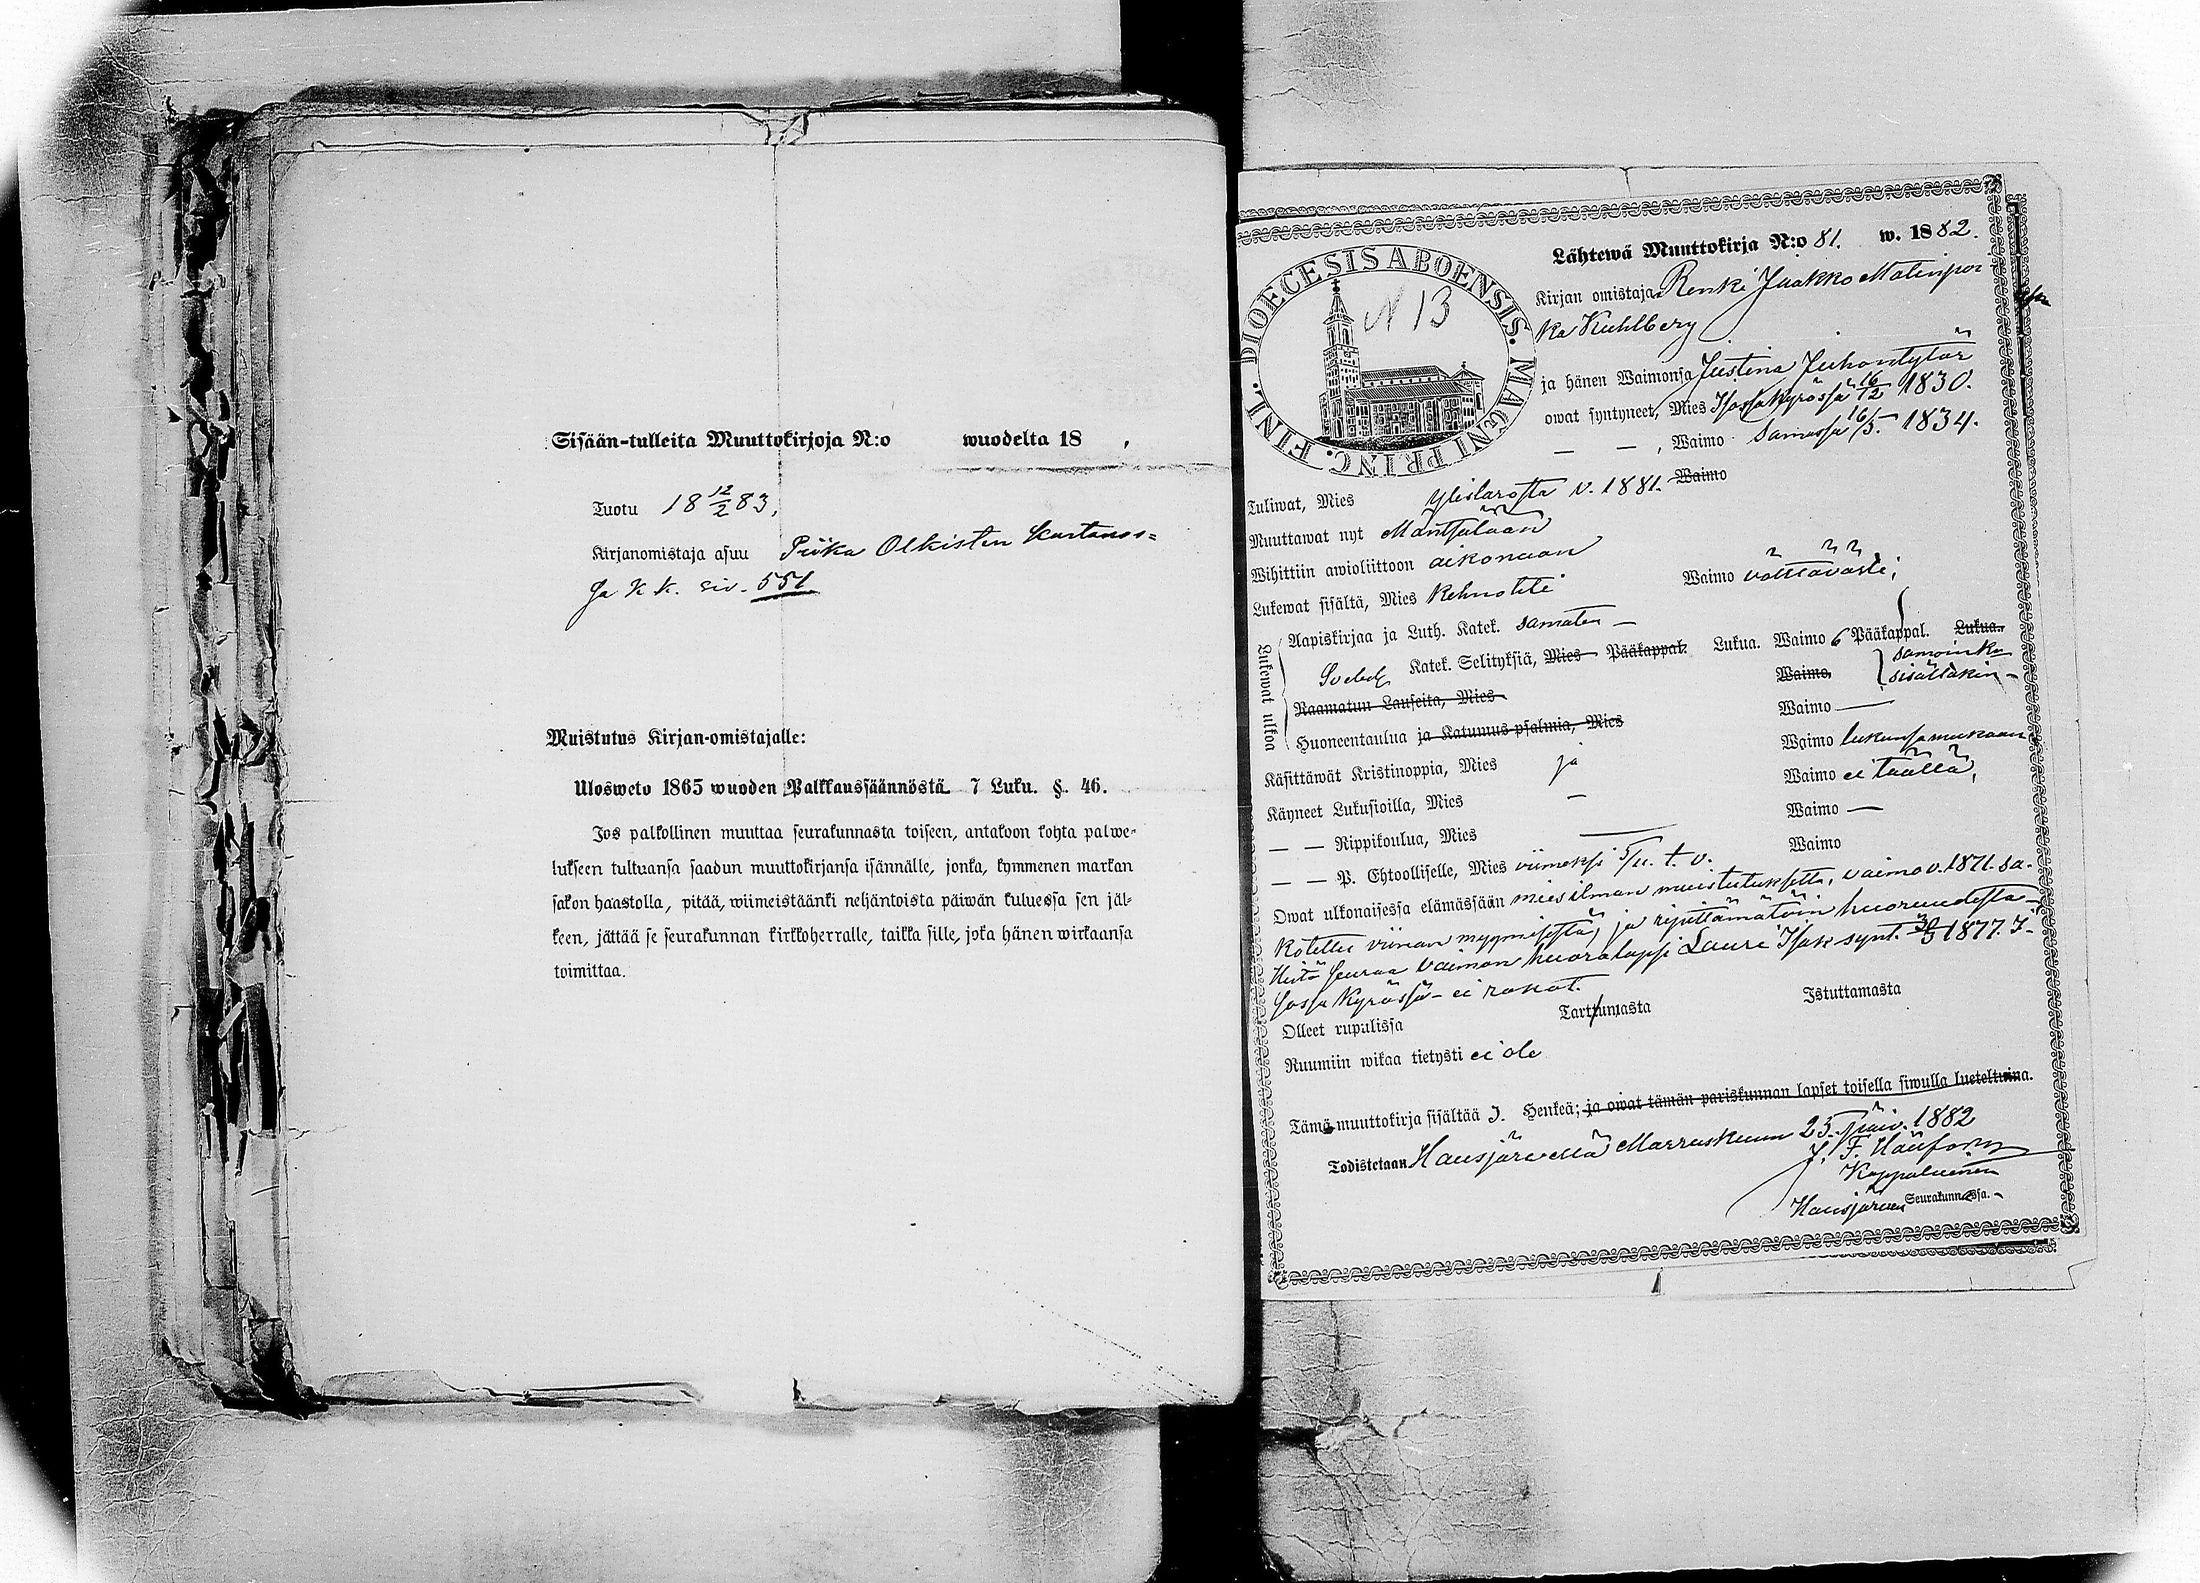 Sisään-tulleita Muuttokirjoja N:o wuodelta 18 .
Tuotu 18 12/2 83,
Kirjanomistaja asuu Piika Olkisten kartanos=
sa K K. siv. 551
Muistutus Kirjan-omistajalle:
Ulosweto 1865 wuoden Palkkaussäännöstä 7 Luku. §. 46.
Jos palkollinen muuttaa seurakunnasta toiseen, antakoon kohta palwe-
lukseen tultuansa saadun muuttokirjansa isännälle, jonka, kymmenen markan
sakon haastolla, pitää, wiimeistäänki neljäntoista päiwän kuluessa sen jäl-
keen, jättää se seurakunnan kirkkoherralle, taikka sille, joka hänen wirkaansa
toimittaa.
DIOECESIS ABOENSIS. MAGNI PRINC. FINL.
N 13
Lähtewä Muuttokirja N:o 81. w. 1882.
Kirjan omistaja Renki Jaakko Matinpoi
ka Kuhlberg
ja hänen Waimonsa Justina Juhontytär
owat syntyneet, Mies Isossakyrössä 16/12 1830.
— — , Waimo samassa 16/5. 1834.
Tuliwat, Mies Ylistarosta v. 1881. Waimo
Muuttawat nyt Mäntsälään
Wihittiin awioliittoon aikonaan
Lukewat sisältä, Mies kehnosti Waimo välttävästi;
Lukewat ulkoa
Aapiskirjaa ja Luth. Katek. samaten —
Svebel. Katek. Selityksiä, Mies Pääkappal. Lukua. Waimo 6 Pääkappal. Lukua.
Raamatun Lauseita, Mies Waimo, samoinko sisältäkin —
Huoneentaulua ja Katumus-psalmia, Mies Waimo —
Käsittäwät Kristinoppia, Mies ja Waimo lukunsa mukaan
Käyneet Lukusioilla, Mies — Waimo ei täällä,
— — Rippikoulua, Mies — Waimo —
— — P. Ehtoollisella, Mies viimeksi 5/11. t. v. Waimo
Owat ulkonaisessa elämässään mies ilman muistutuksetta, vaimo v. 1871. sa-
kotettu viinan myymisestä, ja ripittämätöin huoruudesta —
Heitä seuraa vaimon huoralapsi Lauri Isak synt. 1877. I-
sossa Kyrössä — ei rokot.
Olleet rupulissa Tarttumasta Istuttamasta
Ruumiin wikaa tietysti ei ole
Tämä muuttokirja sisältää 3. Henkeä; ja owat tämän pariskunnan lapset toisella siwulla lueteltuina.
Todistetaan Hausjärvellä Marraskuun 25. päiv. 1882
Kappalainen
Hausjärven Seurakunnassa.